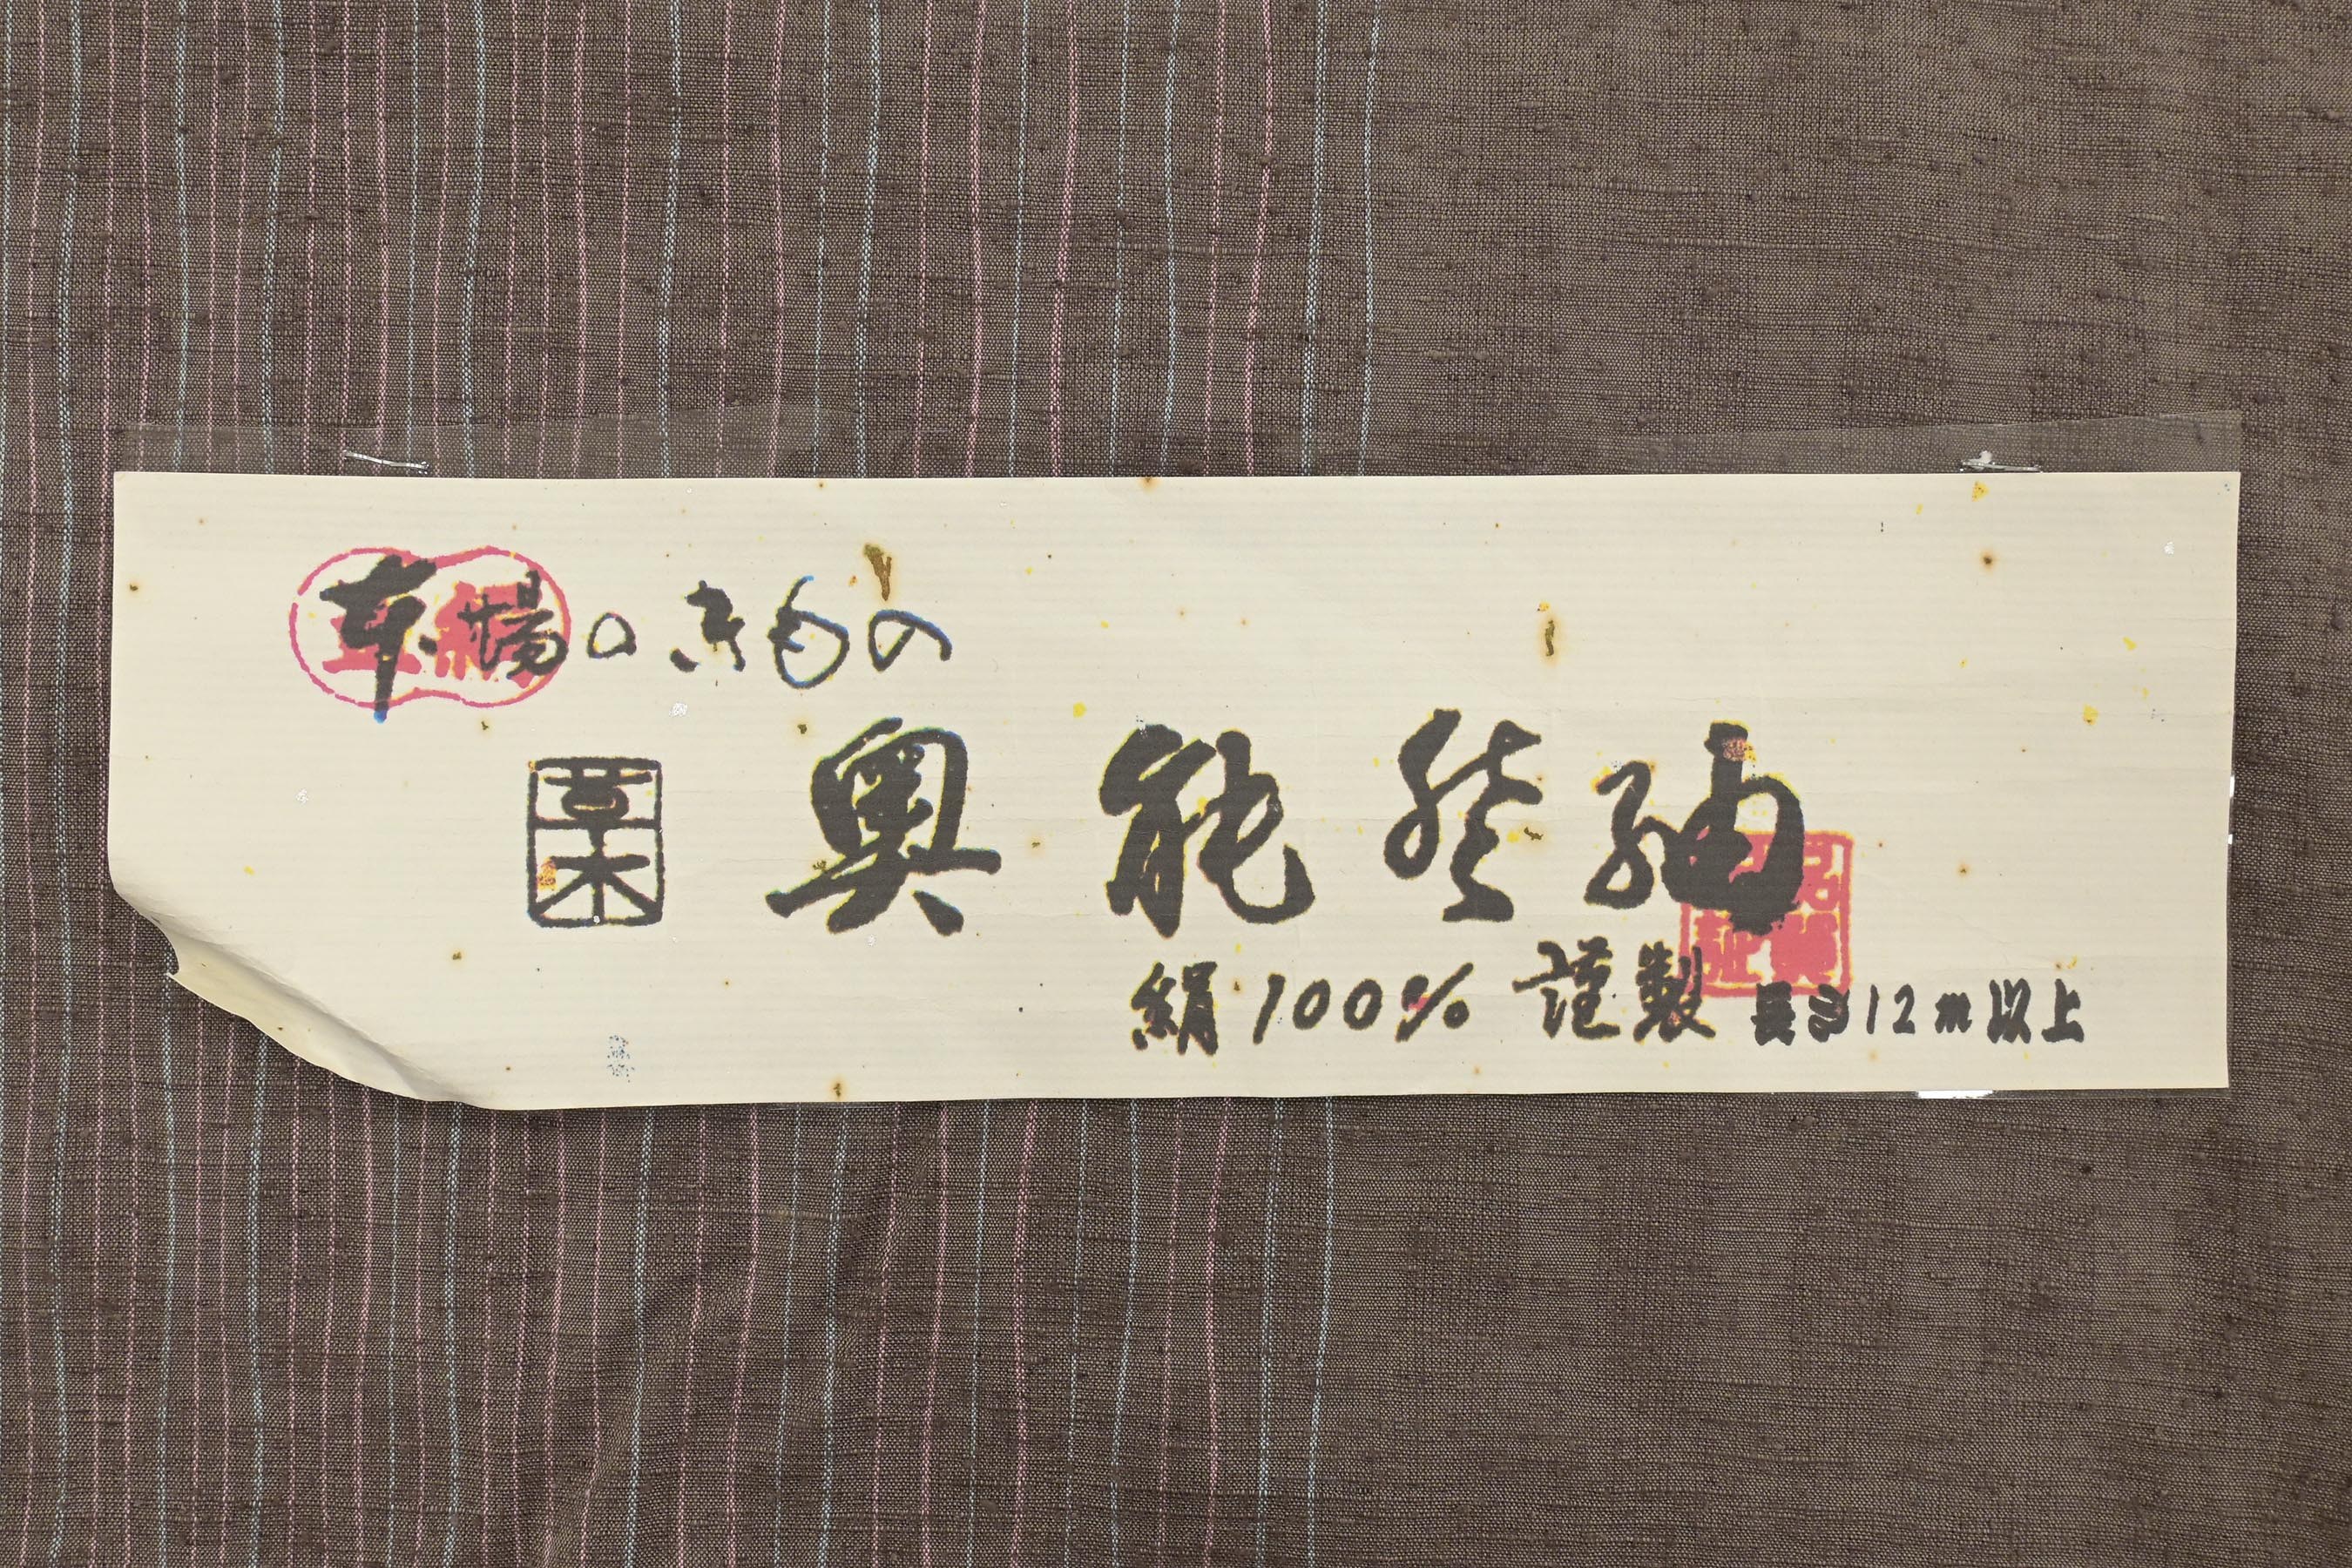 本場のきもの
正絹
草木
奥能登紬
絹100% 謹製 長さ12m以上